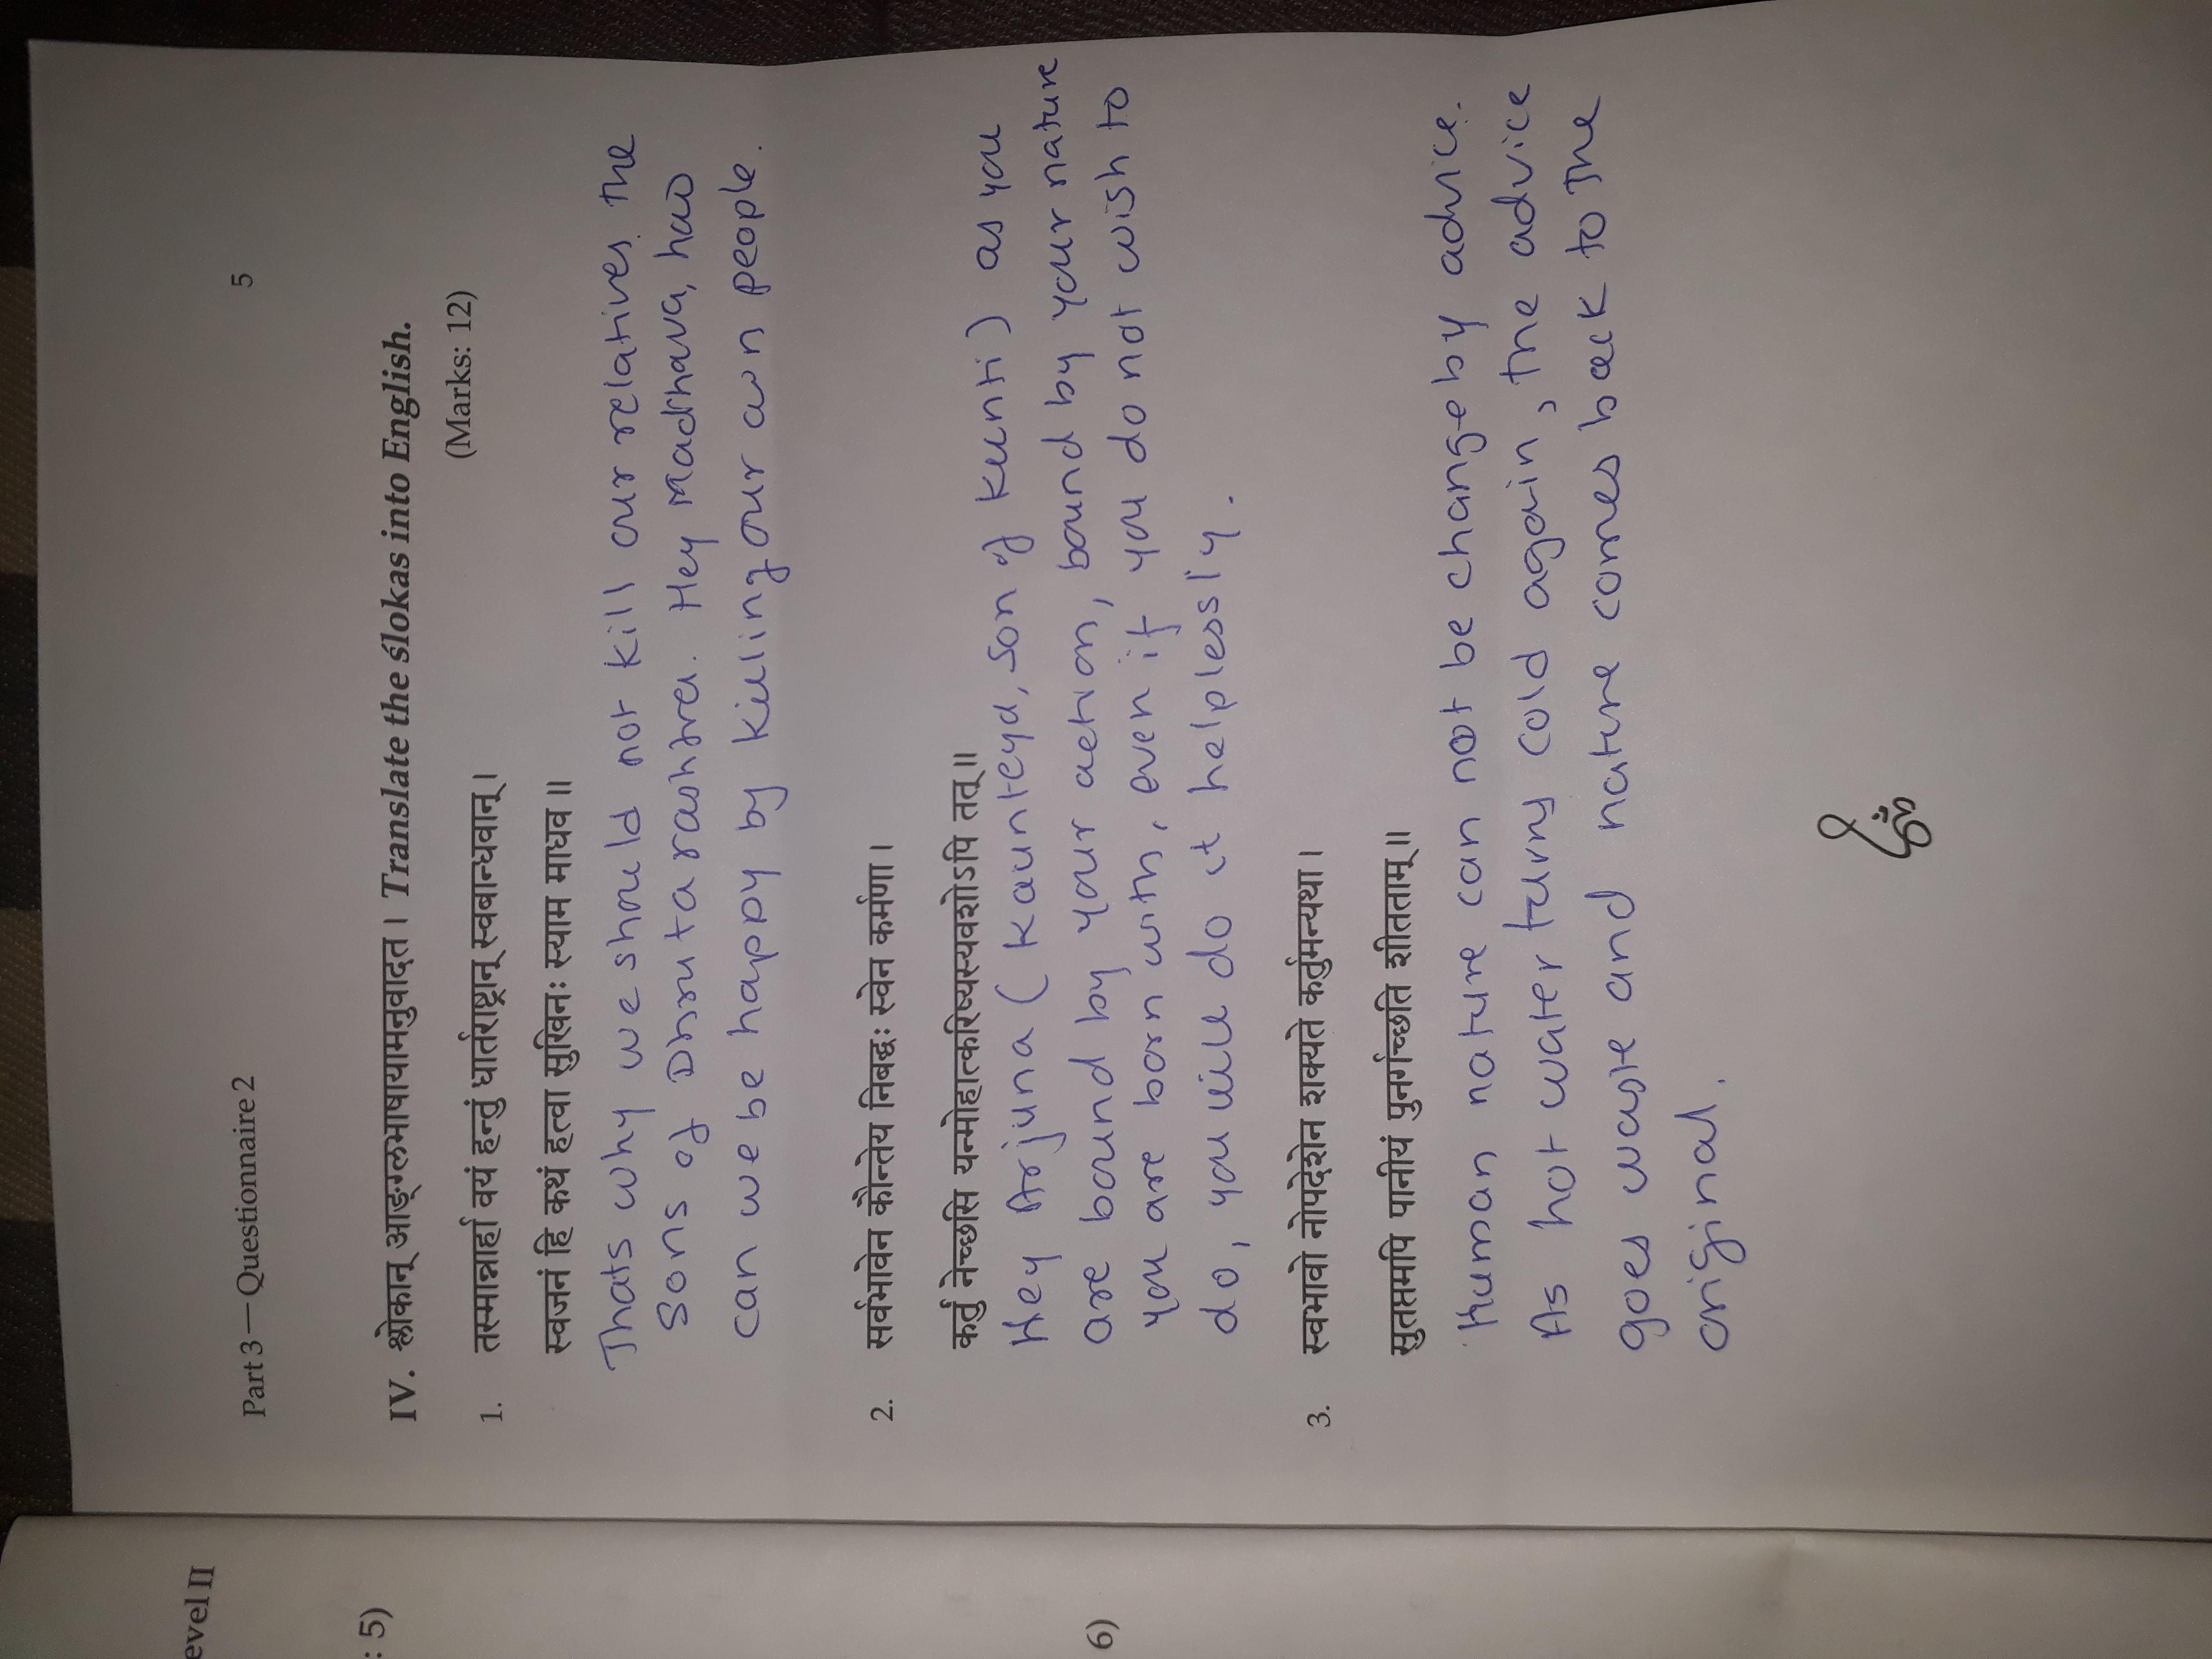 evel II
: 5)
6)
Part 3 — Questionnaire 2 5
IV. श्लोकान् आङ्ग्लभाषायामनुवादत । Translate the ślokas into English.
(Marks: 12)
1. तस्मान्नार्हा वयं हन्तुं धार्तराष्ट्रान् स्वबान्धवान् ।
स्वजनं हि कथं हत्वा सुखिनः स्याम माधव ॥
Thats why we should not kill our relatives. the
sons of Dhrutarashtra. Hey Madhava, how
can we be happy by killing our own people.
2. सर्वभावेन कौन्तेय निबद्धः स्वेन कर्मणा ।
कर्तुं नेच्छसि यन्मोहात्करिष्यस्यवशोऽपि तत् ॥
Hey Arjuna ( Kaunteya, son of Kunti ) as you
are bound by your action, bound by your nature
you are born with, even if you do not wish to
do, you will do it helplessly.
3. स्वभावो नोपदेशेन शक्यते कर्तुमन्यथा ।
सुतप्तमपि पानीयं पुनर्गच्छति शीतताम् ॥
Human nature can not be change by advice.
As hot water turns cold again, the advice
goes waste and nature comes back to the
original.
ॐ